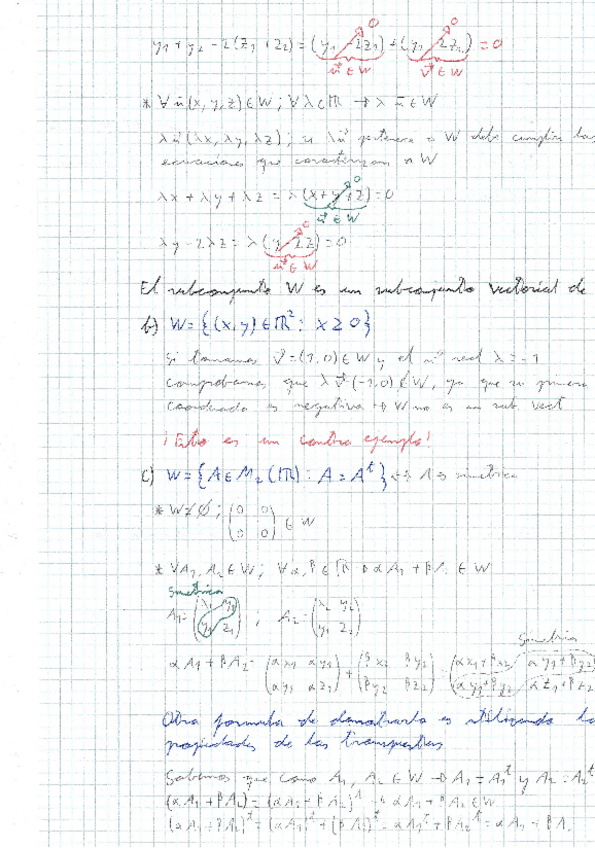 y₁ + y₂ - 2(z₁ + z₂) = (y₁ - 2z₁) + (y₂ 2z₂) = 0
0 0
u⃗ ∈ W v⃗ ∈ W
* ∀ u⃗(x, y, z) ∈ W ; ∀ λ ∈ ℝ → λ u⃗ ∈ W
λu⃗(λx, λy, λz) ; si λu⃗ pertenece a W debe cumplir las
ecuaciones que caracterizan a W
λx + λy + λz = λ(x+y+z) = 0
0
u⃗ ∈ W
λy - 2λz = λ(y 2z) = 0
0
u⃗ ∈ W
El subconjunto W es un subconjunto vectorial de
b) W = {(x,y) ∈ ℝ² : x ≥ 0}
Si tomamos v⃗ = (1,0) ∈ W y el nº real λ = -1
comprobamos que λ v⃗ (-1,0) ∉ W, ya que su primera
coordenada es negativa → W no es un sub. vect
¡Esto es un contra ejemplo!
c) W = {A ∈ M₂(ℝ) : A = Aᵗ} ↔ A es simetrica
* W ≠ ∅ ; (0 0
0 0) ∈ W
* ∀ A₁, A₂ ∈ W ; ∀ α, β ∈ ℝ → αA₁ + βA₂ ∈ W
simetrica
A₁ = (x₁ y₁ ; A₂ = (x₂ y₂
y₁ z₁) y₂ z₂)
Simetria
αA₁ + βA₂ = (αx₁ αy₁ + (βx₂ βy₂ = (αx₁+βx₂ αy₁+βy₂
αy₁ αz₁) βy₂ βz₂) αy₁+βy₂ αz₁+βz₂
Otra formula de demostrarlo es utilizando la
propiedades de las transpuestas
Sabemos que como A₁, A₂ ∈ W → A₁ = A₁ᵗ y A₂ = A₂ᵗ
(αA₁ + βA₂) = (αA₁ + βA₂)ᵗ → αA₁ + βA₂ ∈ W
(αA₁ + βA₂)ᵗ = (αA₁)ᵗ + (βA₂)ᵗ = αA₁ᵗ + βA₂ᵗ = αA₁ + βA₂